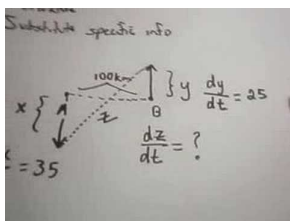 Substitute specific info
100km
x { z } y dy/dt = 25
B
dz/dt = ?
= 35